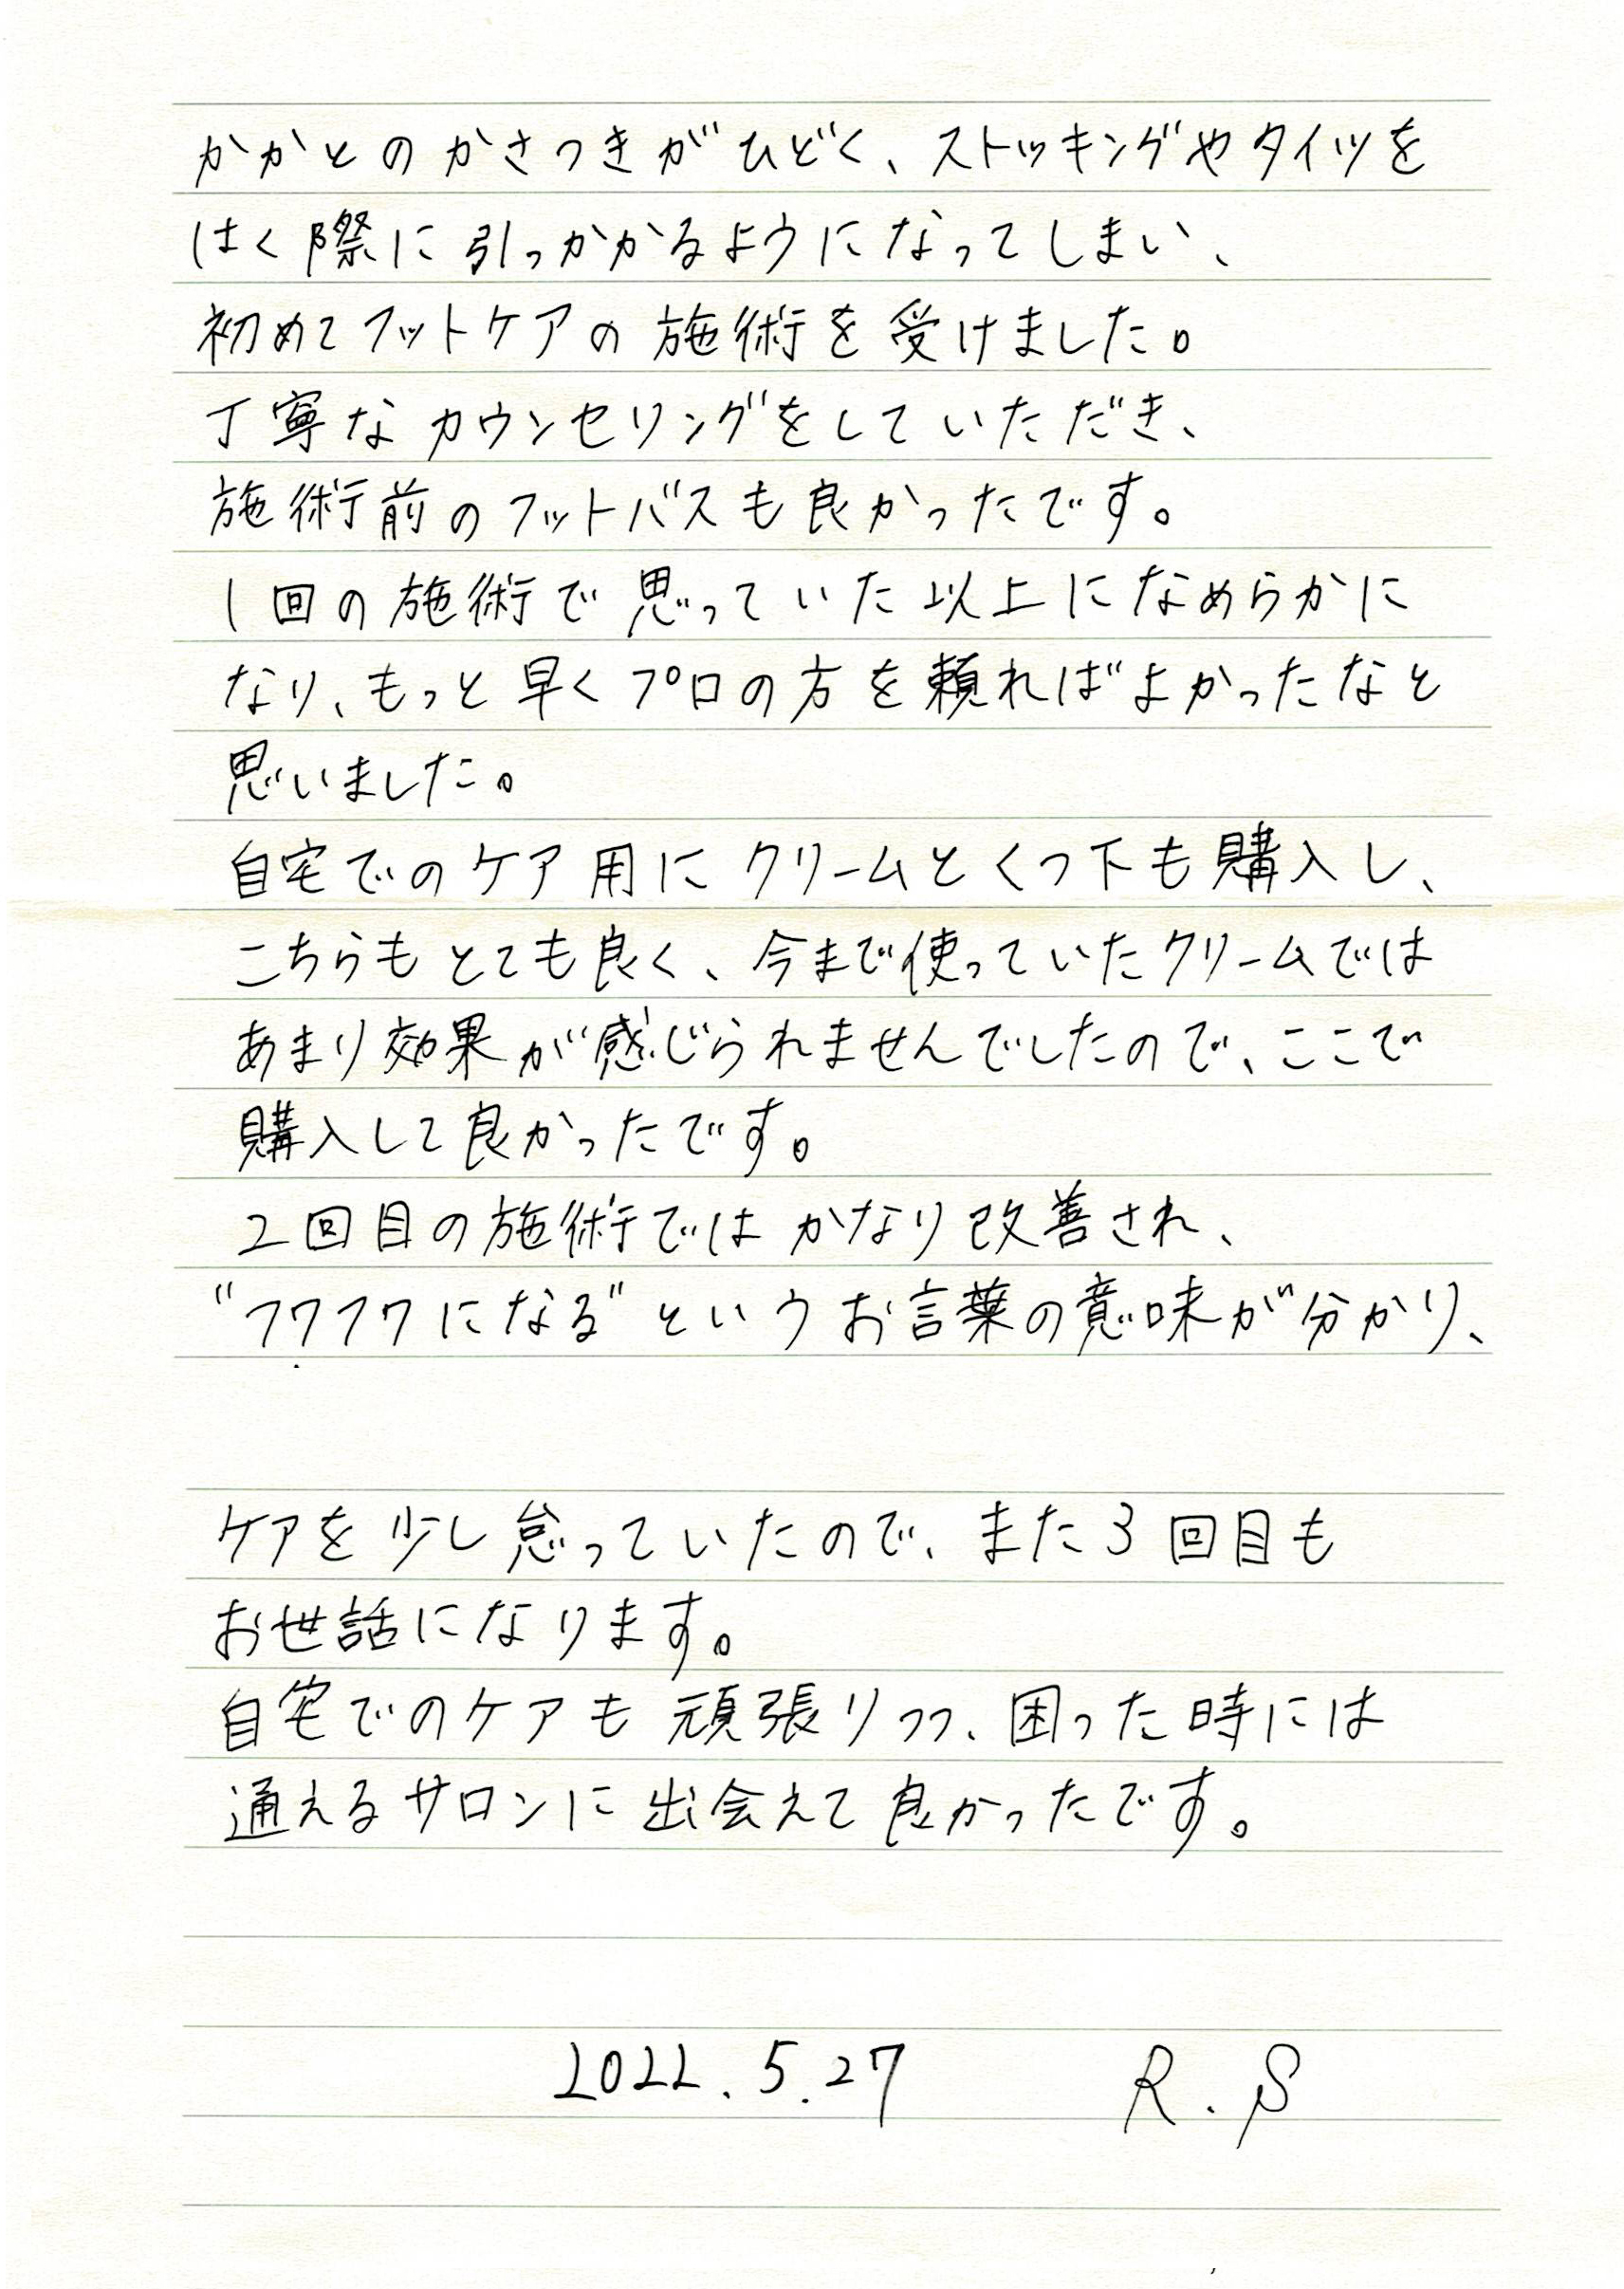 かかとのかさつきがひどく、ストッキングやタイツを
はく際に引っかかるようになってしまい、
初めてフットケアの施術を受けました。
丁寧なカウンセリングをしていただき、
施術前のフットバスも良かったです。
1回の施術で思っていた以上になめらかに
なり、もっと早くプロの方を頼ればよかったなと
思いました。
自宅でのケア用にクリームとくつ下も購入し、
こちらもとても良く、今まで使っていたクリームでは
あまり効果が感じられませんでしたので、ここで
購入して良かったです。
2回目の施術ではかなり改善され、
"フワフワになる"というお言葉の意味が分かり、
ケアを少し怠っていたので、また3回目も
お世話になります。
自宅でのケアも頑張りつつ、困った時には
通えるサロンに出会えて良かったです。
2022.5.27 R.S